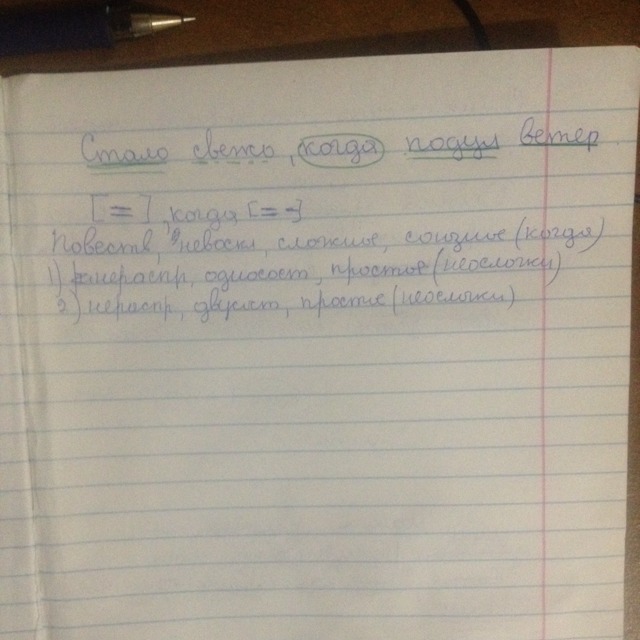 Стало светло, когда подул ветер
[=], когда [= -]
Повеств, невоскл, сложное, союзное (когда)
1) нераспр, односост, простое (неослож)
2) нераспр, двусост, простое (неослож)